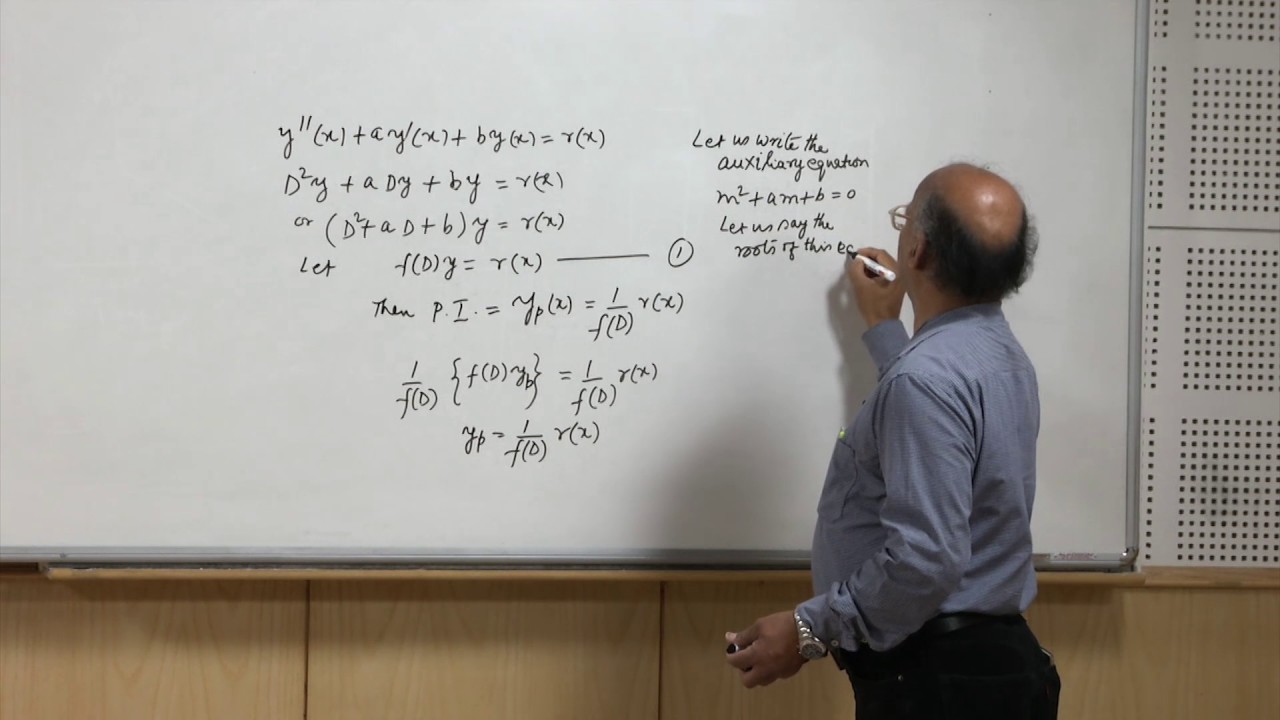 y''(x) + a y'(x) + b y(x) = r(x)
D²y + a Dy + by = r(x)
or (D² + a D + b) y = r(x)
Let f(D) y = r(x) ——— ①
Then P.I. = y_p(x) = 1/f(D) r(x)
1/f(D) {f(D) y_p} = 1/f(D) r(x)
y_p = 1/f(D) r(x)
Let us write the
auxiliary equation
m² + am + b = 0
Let us say the
roots of this eq